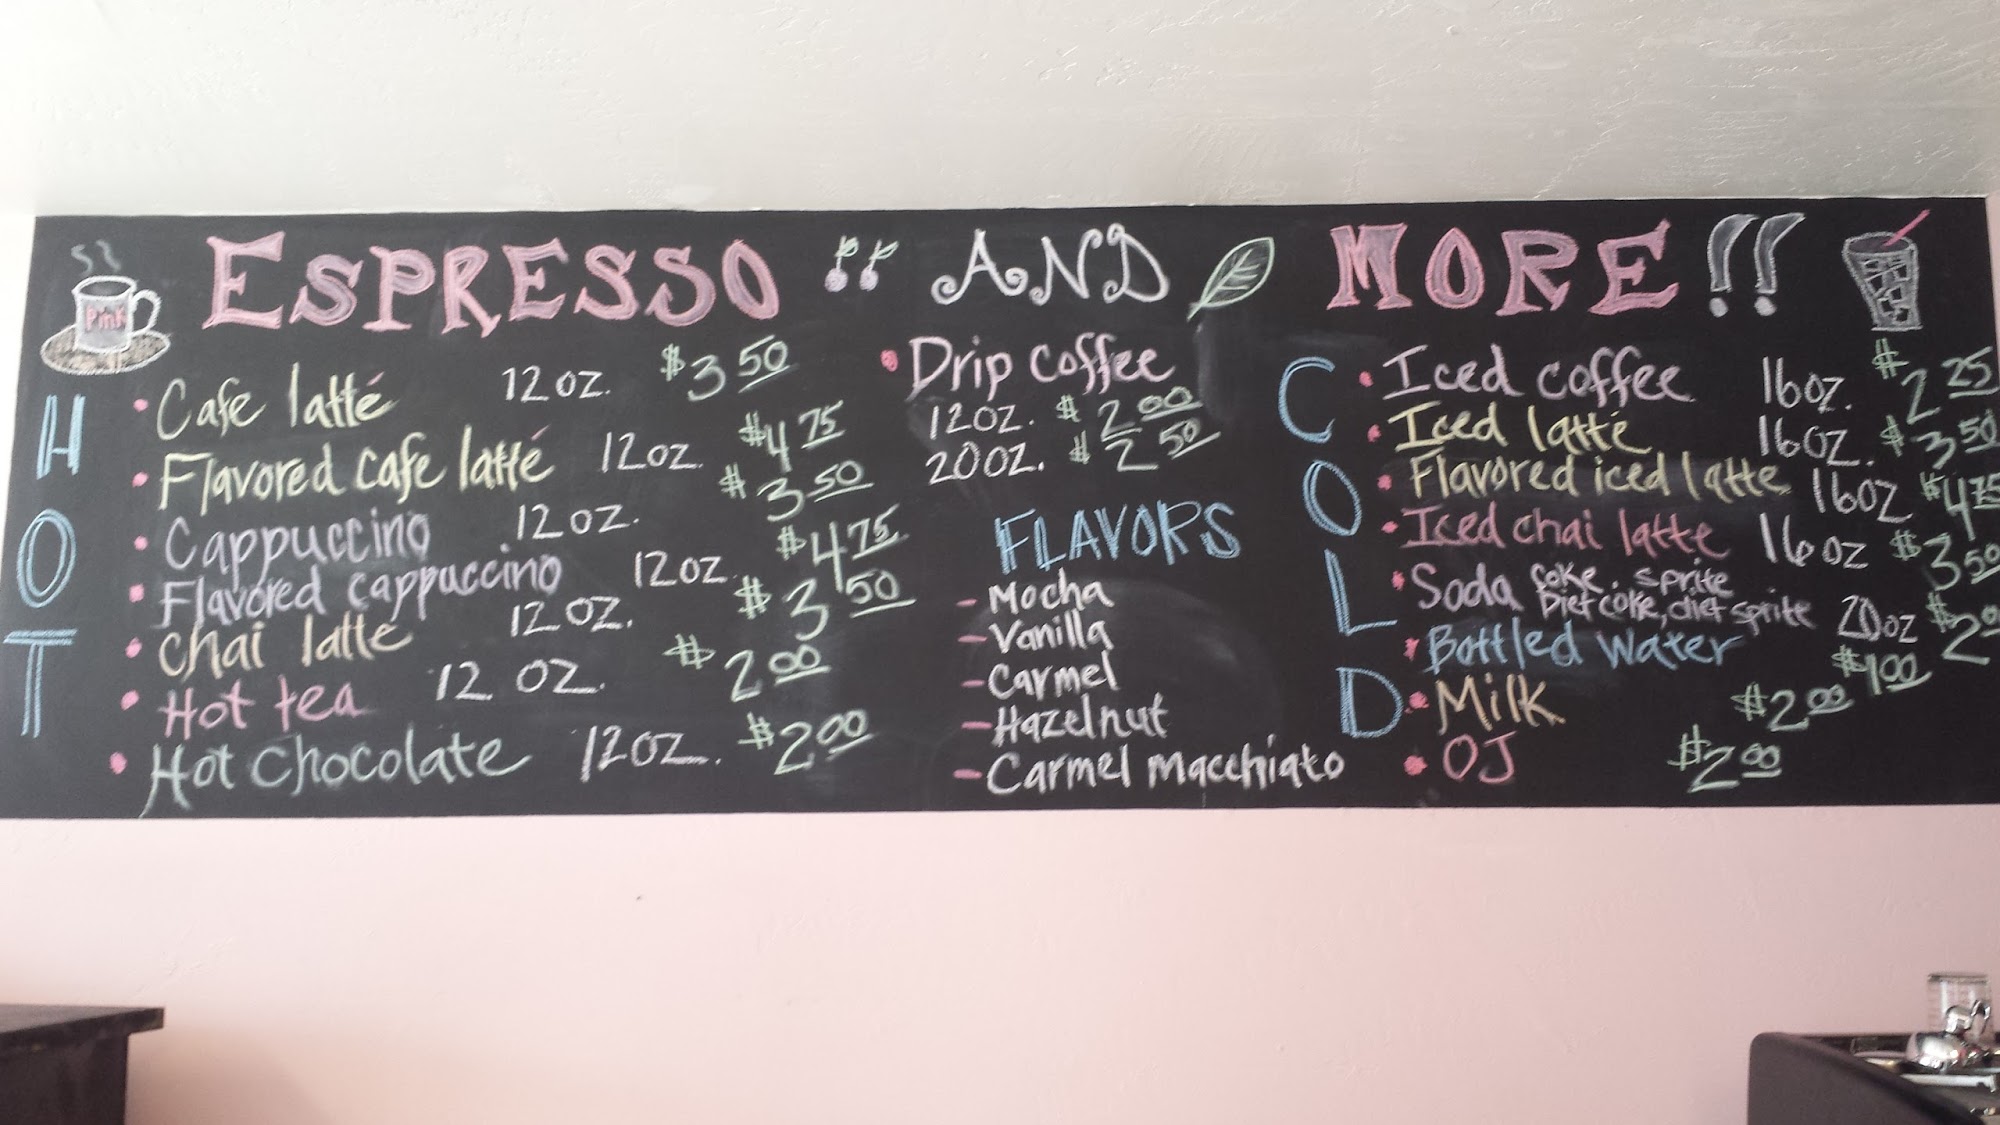 Pink
ESPRESSO AND MORE!!
HOT
• Cafe latté 12oz. $3.50
• Flavored cafe latté 12oz. $4.75
• Cappuccino 12oz. $3.50
• Flavored cappuccino 12oz. $4.75
• Chai latte 12oz. $3.50
• Hot tea 12oz. $2.00
• Hot Chocolate 12oz. $2.00
• Drip Coffee
12oz. $2.00
20oz. $2.50
FLAVORS
- Mocha
- Vanilla
- Carmel
- Hazelnut
- Carmel Macchiato
COLD
• Iced coffee 16oz. $2.25
• Iced latté 16oz. $3.50
• Flavored iced latte 16oz $4.75
• Iced chai latte 16oz $3.50
• Soda Coke, Sprite
Diet coke, diet sprite 20oz $2.0
• Bottled Water $1.00
• Milk $2.00
• OJ $2.00